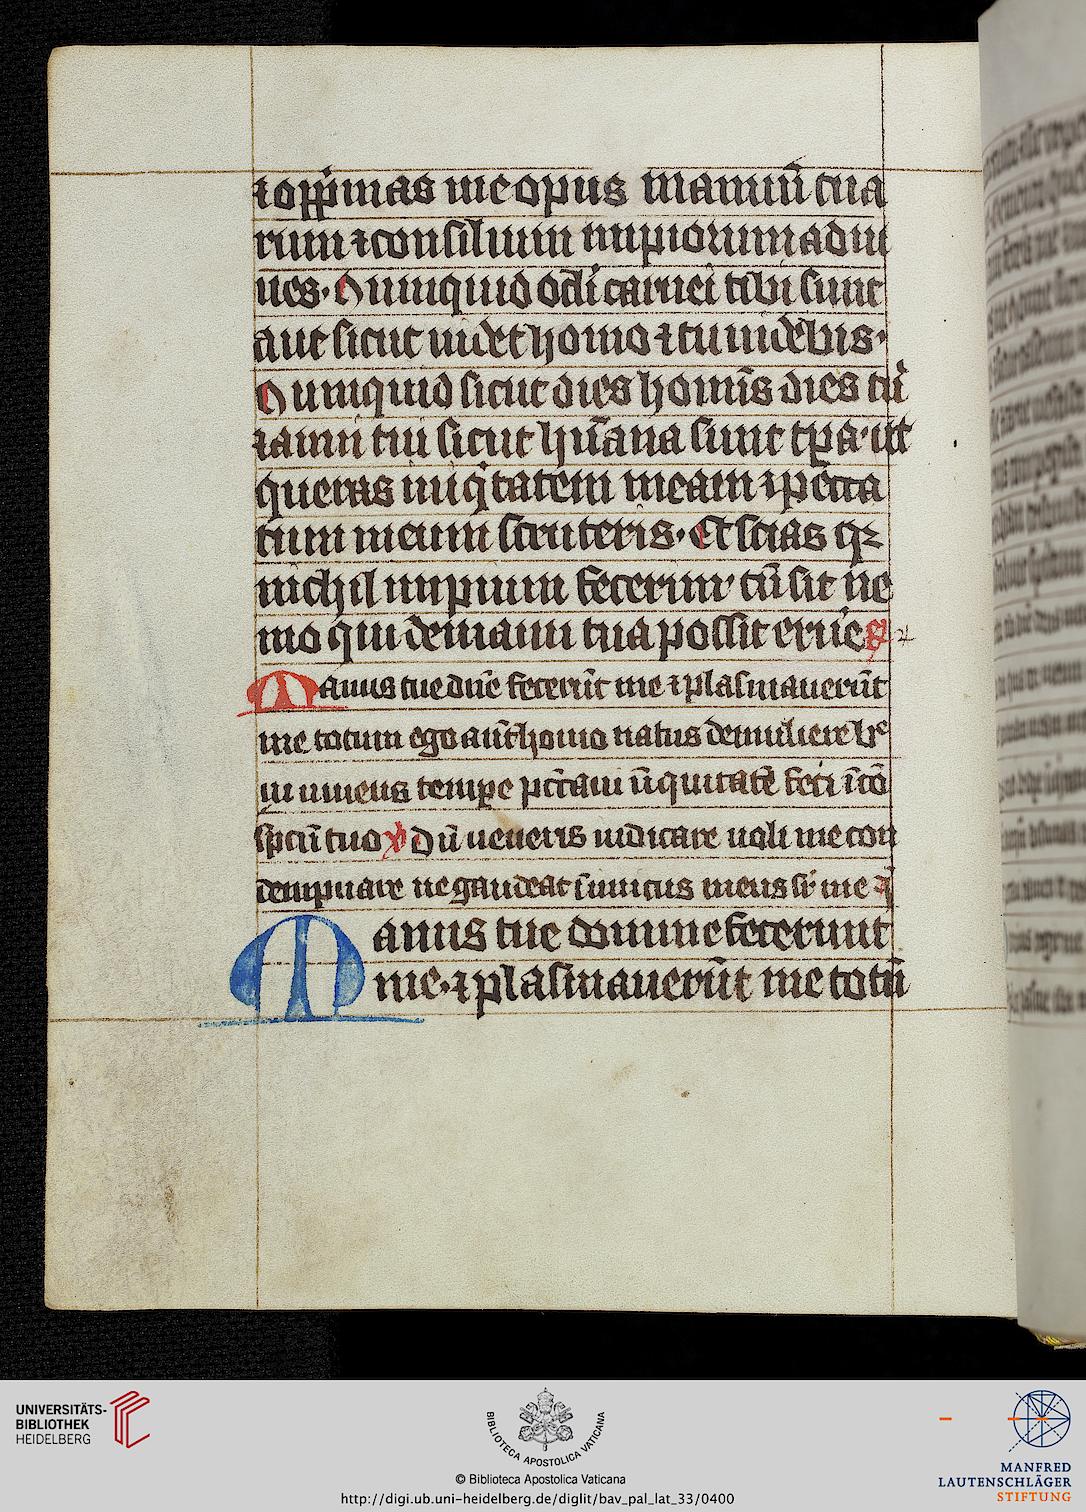 ⁊ opp̄mas me opus manuū tua
rum ⁊ consilium impiorum adiu
ues. Numquid oc̄li carnei tibi sunt
aut sicut uidet homo ⁊ tu uidebis.
Numquid sicut dies hom̄is dies tui
⁊ anni tui sicut hūana sunt tp̄a. ut
queras iniqͥtatem meam ⁊ pecca
tum meum scruteris. Et scias qꝛ
nichil impium fecerim cū sit ne
mo qui de manu tua possit erue℟
Manus tue dn̄e fecerūt me ⁊ plasmauerūt
me totum ego aut̄ homo natus de muliere
tempe pcc̄aui feci
tuo ℣ Dū ueneris iudicare noli me con
dempnare ne gaudeat inimicus meus me
Manus tue domine fecerunt
me. ⁊ plasmauerūt me totū
UNIVERSITÄTS-
BIBLIOTHEK
HEIDELBERG
BIBLIOTECA APOSTOLICA VATICANA
© Biblioteca Apostolica Vaticana
http://digi.ub.uni-heidelberg.de/diglit/bav_pal_lat_33/0400
MANFRED
LAUTENSCHLÄGER
STIFTUNG